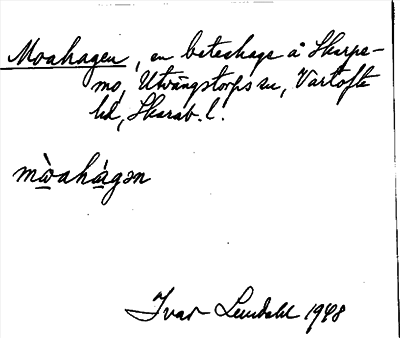 Moahagen, en beteshage å Skarpe-
mo, Utvängstorps sn, Vartofta
hd, Skarab. l.
mòahàgən
Ivar Lundahl 1948